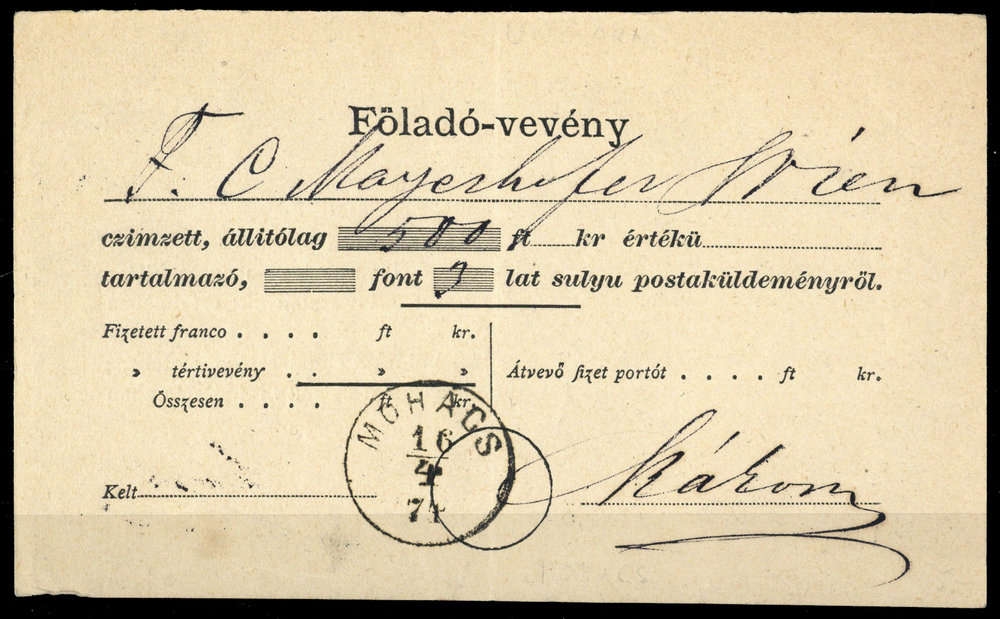 Föladó-vevény
F. C Mayerhofer Wien
czimzett, állitólag 500 ft kr értékü
tartalmazó, font 3 lat sulyu postaküldeményről.
Fizetett franco . . . . ft kr.
» tértivevény . . » »
Összesen . . . . ft kr.
Átvevő fizet portót . . . . ft kr.
MOHÁCS
16
4
71
Kelt